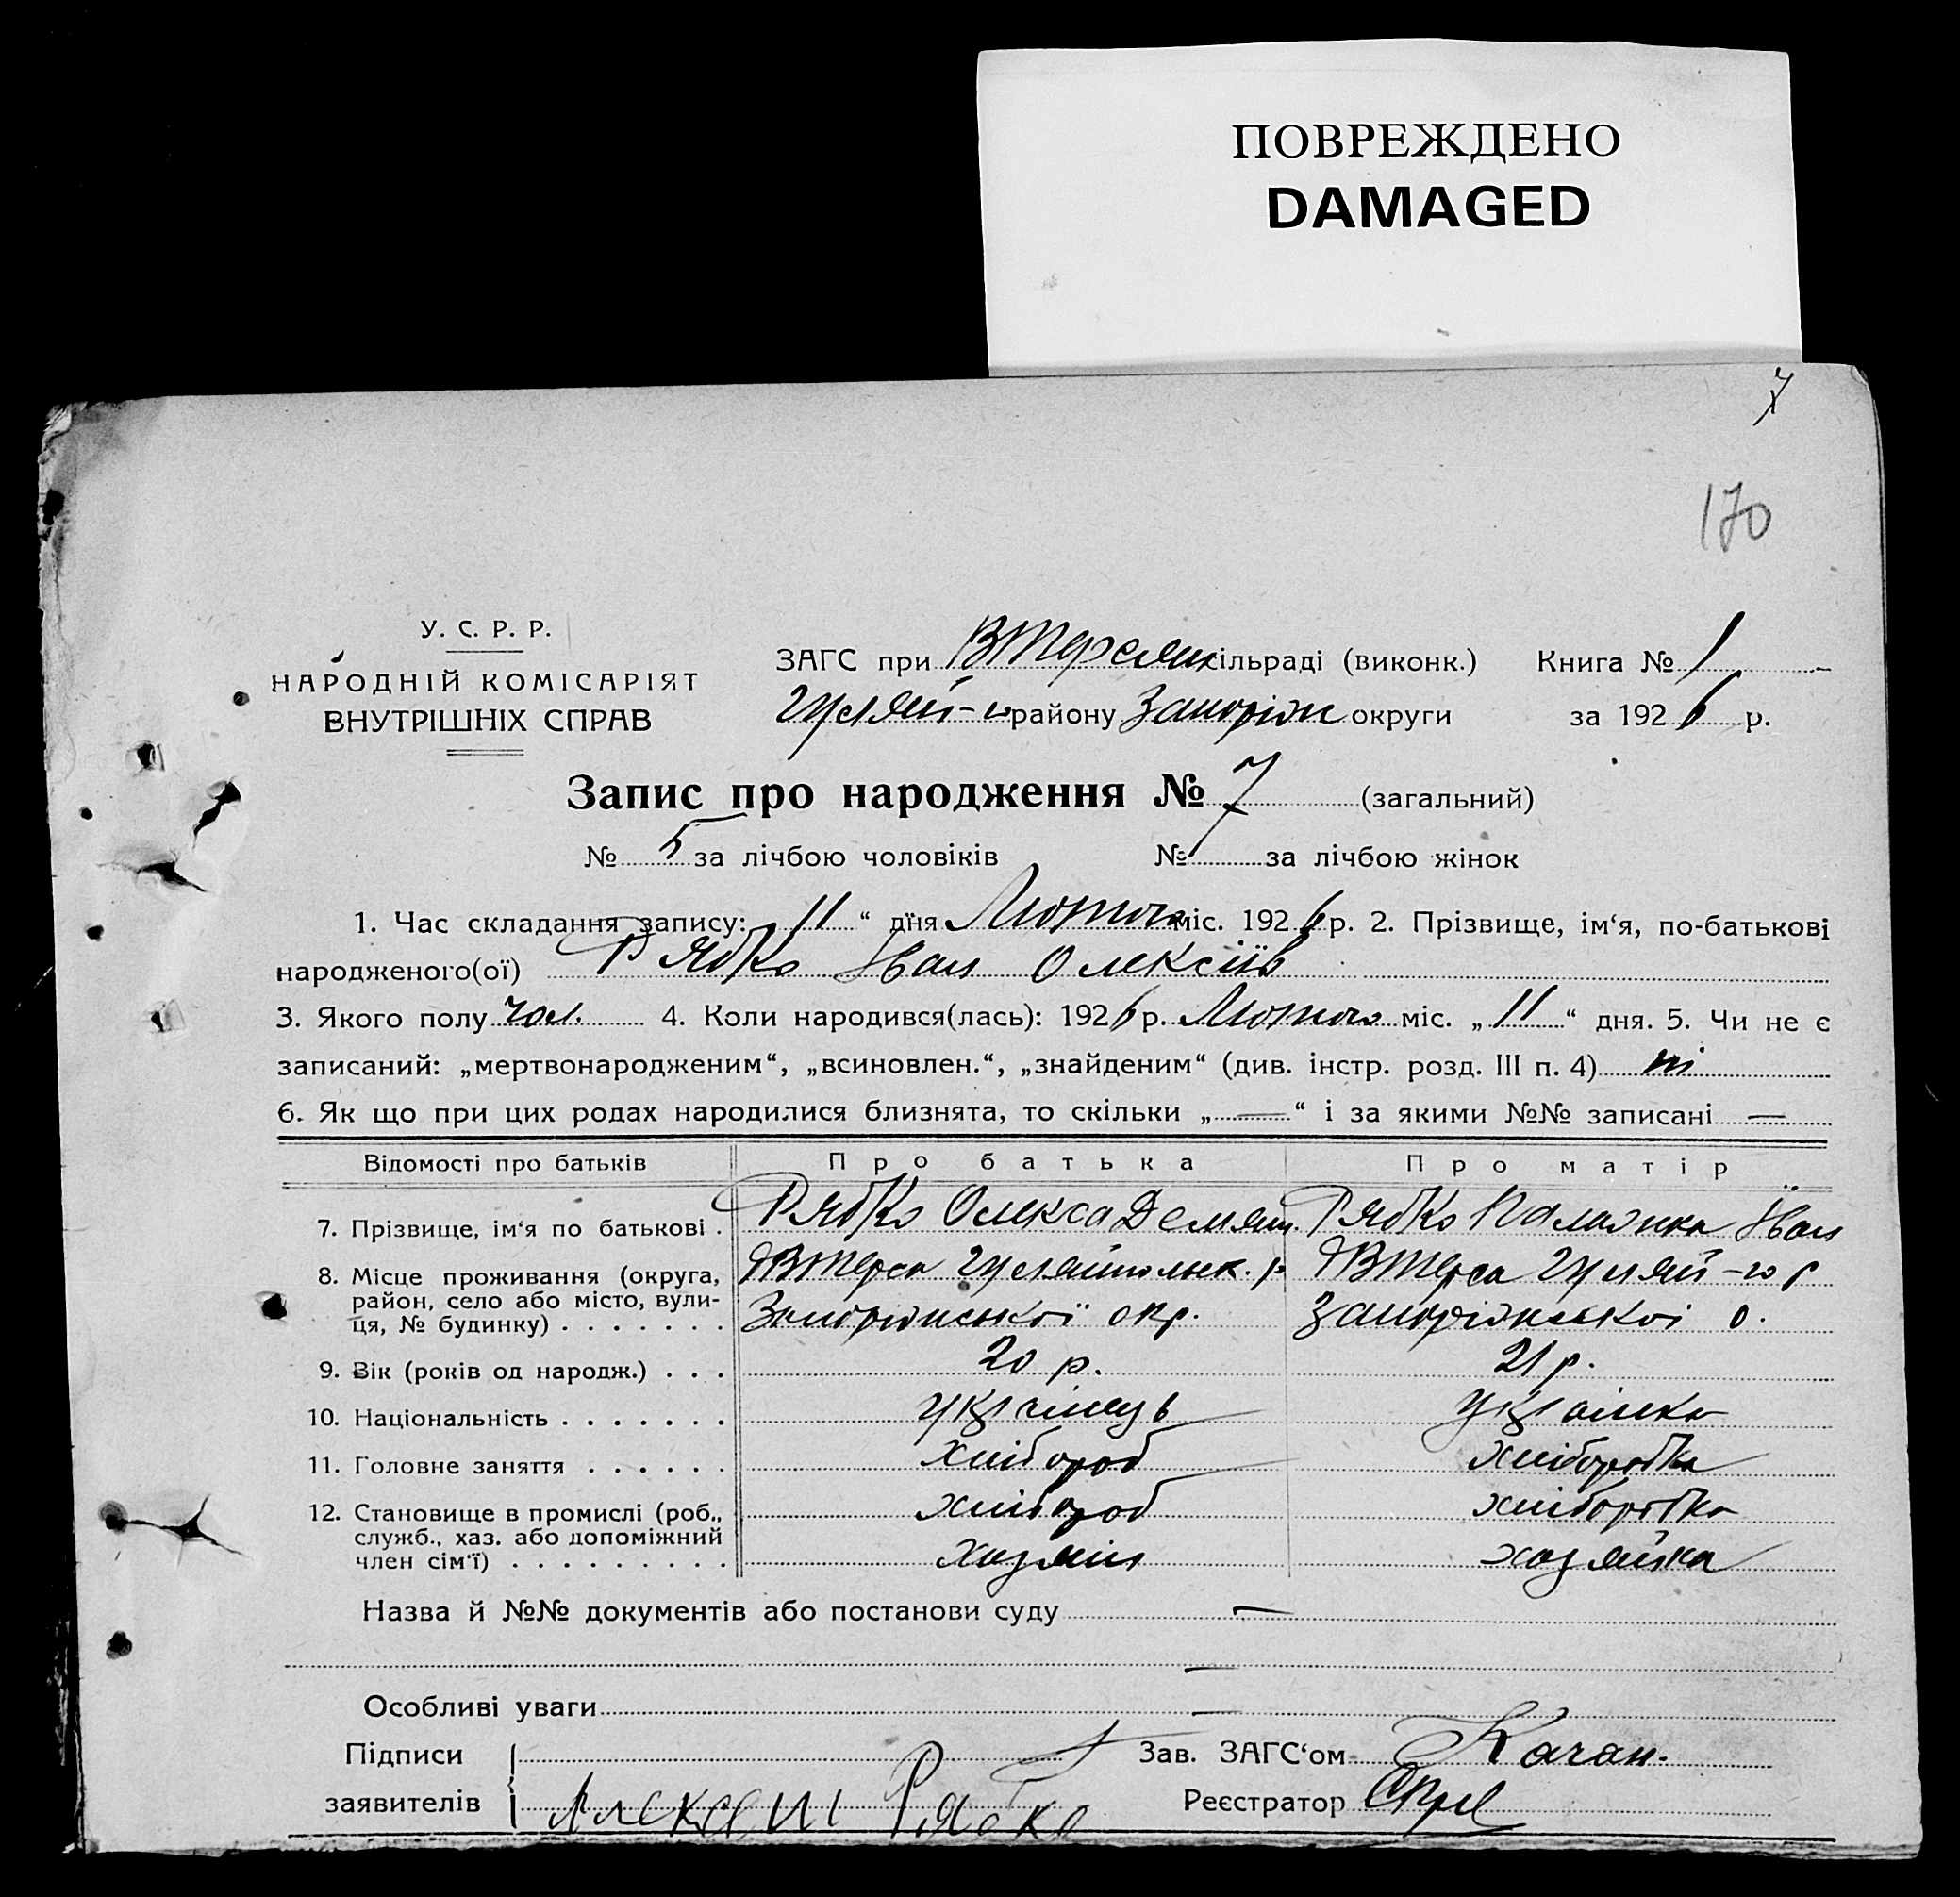 ПОВРЕЖДЕНО
DAMAGED
7
170
У. С. Р. Р.
НАРОДНІЙ КОМІСАРІЯТ
ВНУТРІШНІХ СПРАВ
ЗАГС при ВТерсян сільраді (виконк.) Книга № 1
Гуляй-го району Запоріж округи за 1926 р.
Запис про народження № 7 (загальний)
№ 5 за лічбою чоловіків № за лічбою жінок
1. Час складання запису: 11 “ дня Лютого міс. 1926 р. 2. Прізвище, ім‘я, по-батькові
народженого(ої) Рябко Іван Олексіїв
3. Якого полу чол. 4. Коли народився(лась): 1926 р. Лютого міс. „ 11 “ дня. 5. Чи не є
записаний: „мертвонародженим“, „всиновлен.“, „знайденим“ (див. інстр. розд. III п. 4) ні
6. Як що при цих родах народилися близнята, то скільки „ — “ і за якими №№ записані —
Відомості про батьків Про батька Про матір
7. Прізвище, ім‘я по батькові . Рябко Олекса Демян. Рябко Палажка Іван
8. Місце проживання (округа, ВТерса Гуляйпольск. р ВТерса Гуляй-го р
район, село або місто, вули-
ця, № будинку) . . . . . . . Запоріжської окр. Запоріжської о.
9. Вік (років од народж.) . . . 20 р. 21 р.
10. Національність . . . . . . . українець українка
11. Головне заняття . . . . . . хлібороб хліборобка
12. Становище в промислі (роб., хлібороб хліборобка
служб., хаз. або допоміжний
член сім‘ї) . . . . . . . . . . хазяін хазяйка
Назва й №№ документів або постанови суду —
—
Особливі уваги —
Підписи Зав. ЗАГС‘ом Качан.
заявителів Рябко Реєстратор